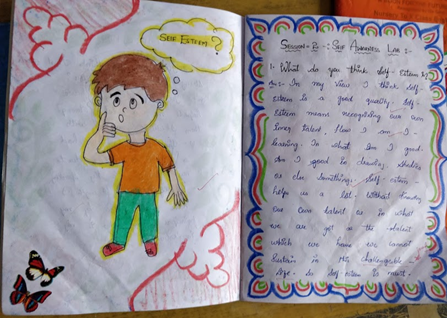 Self Esteem ?
Session - 2 :- Self Awareness Lab :-
1. What do you think Self-Esteem is?
Ans:- In my View I think Self-
Esteem is a good quality. Self-
Esteem means recognizing our own
inner talent. How I am I
learning. In what Am I good.
Am I good in drawing, studies
or else Something. Self-esteem
help us a lot. Without knowing
our own talent as in what
we are good or the talent
which we have we cannot
Sustain in this challengeable
life. So Self-esteem is must.